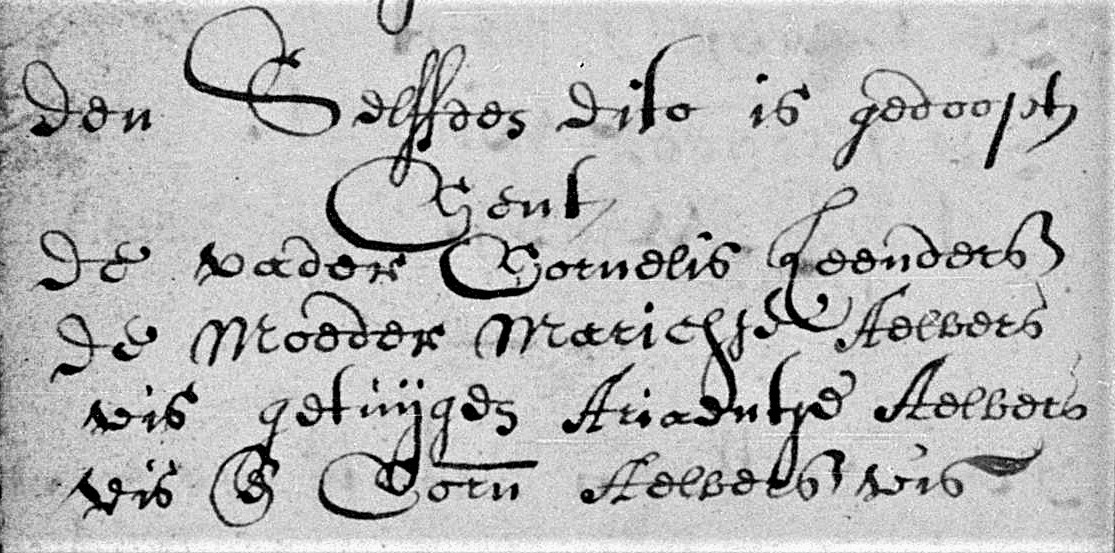 den Selffden dito is gedoopt
Cent
de vader Cornelis Leenders
de Moeder Marichje Aelbers
vis getuijgen Ariaentje Aelbers
vis & Corn Aelbers vis